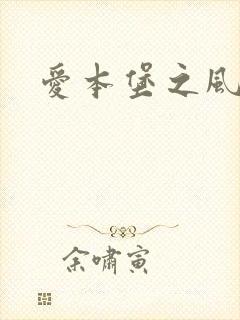 愛本堡之風
余嘯寅